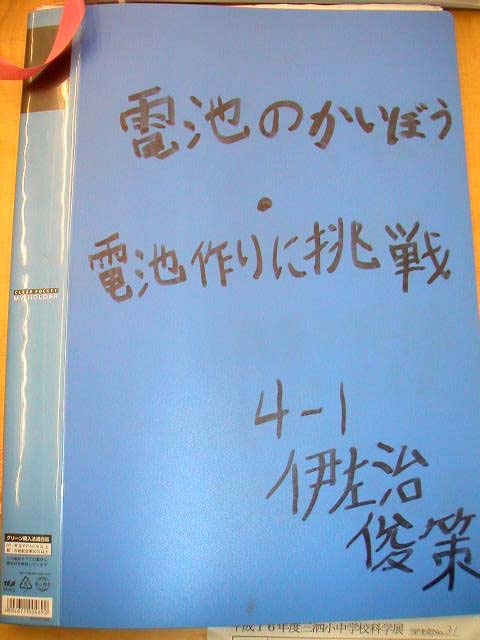 電池のかいぼう
・
電池作りに挑戦
4-1
伊左治
俊策
CLEAR POCKET
MY HOLDER
グリーン購入法適合品
平成16年度三泗小中学校科学展